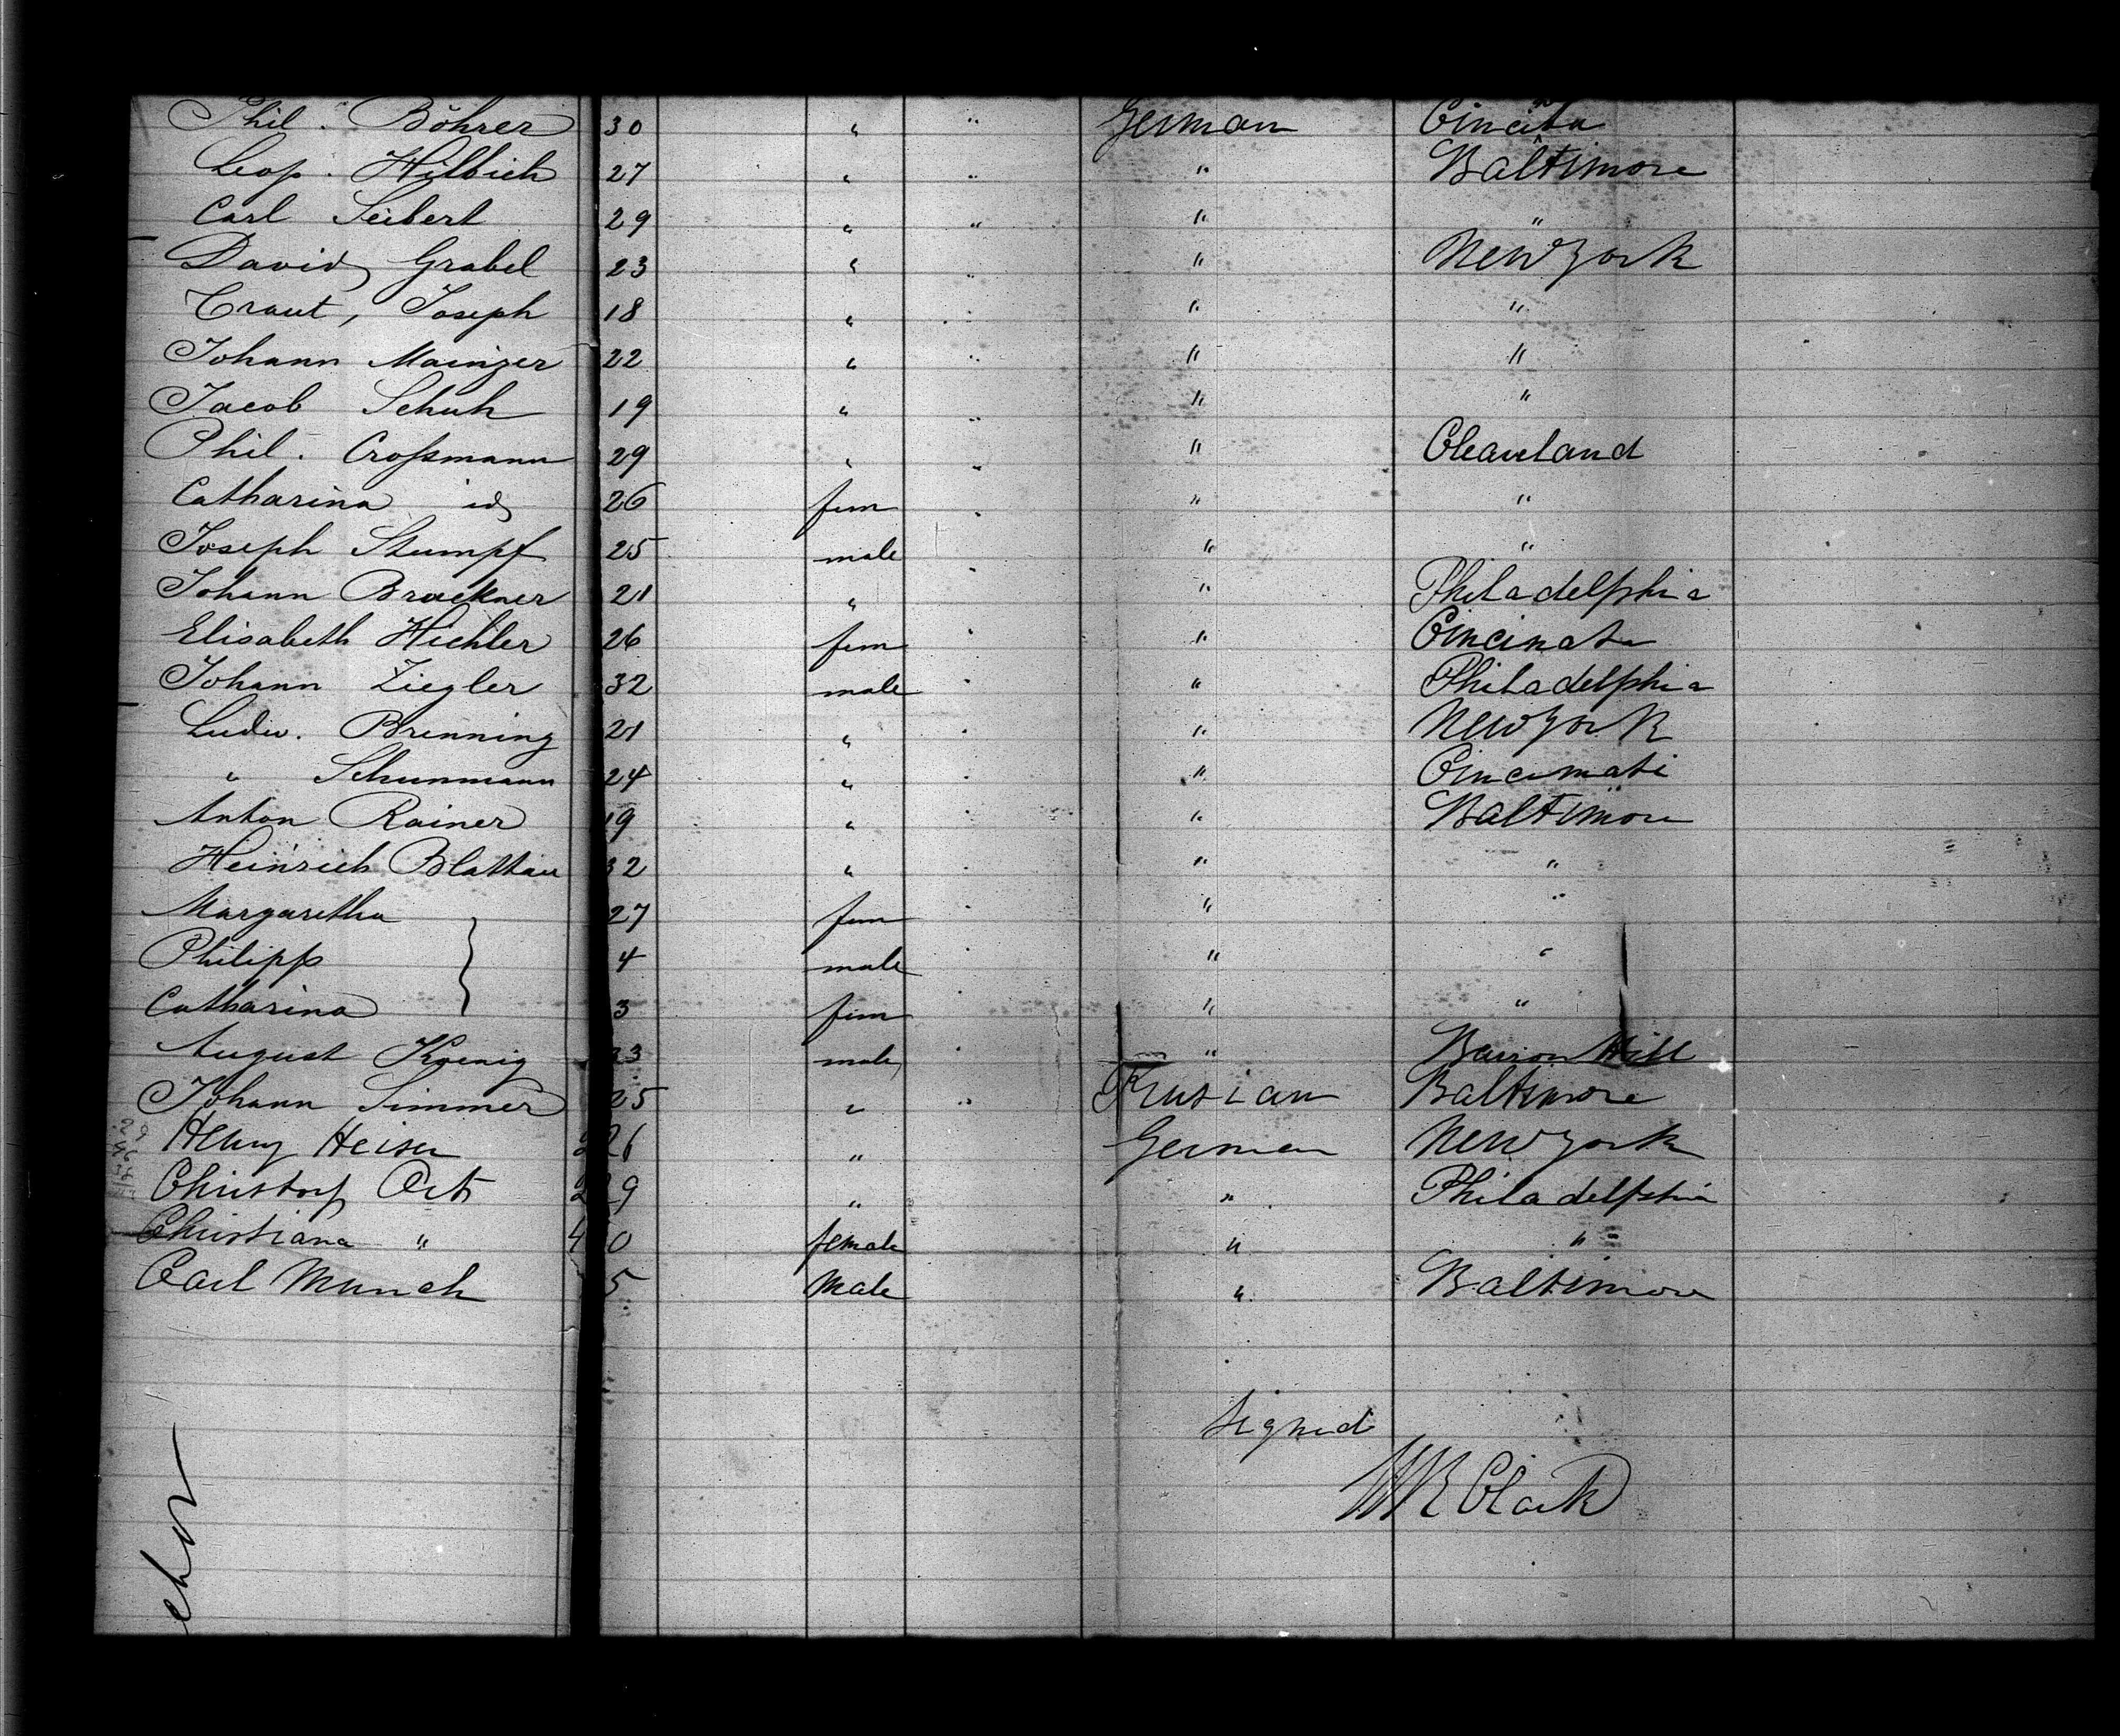 Phil. Böhrer 30 " " German
Leop. Hilbich 27 " " " Baltimore
Carl Seibert 29 " " " "
David Grabel 23 " " " New York
Traut, Joseph 18 " " " "
Johann Mainzer 22 " " " "
Jacob Schuh 19 " " " "
Phil. Croßmann 29 " " " Cleaveland
Catharina id 26 fem " " "
Joseph Stumpf 25 male " "
Johann Bruckner 21 " " " Philadelphia
Elisabeth Hichler 26 fem " " Cincinati
Johann Ziegler 32 male " " Philadelphia
Ludw. Brenning 21 " " " New York
" Schunmann 24 " " " Cincinnati
Anton Rainer 19 " " " Baltimore
Heinrich Blattau 32 " " "
Margaretha 27 fem " " "
Philipp 4 male " " "
Catharina 3 fem " " "
August Koenig 23 male " " Barron Hill
Johann Simmer 25 " " Rusian Baltimore
Henry Heiser 26 " German New York
Christorf Ort 29 " " Philadelphia
Christiana " 40 female " "
Carl Munch 5 Male " Baltimore
Signed
WR Clark